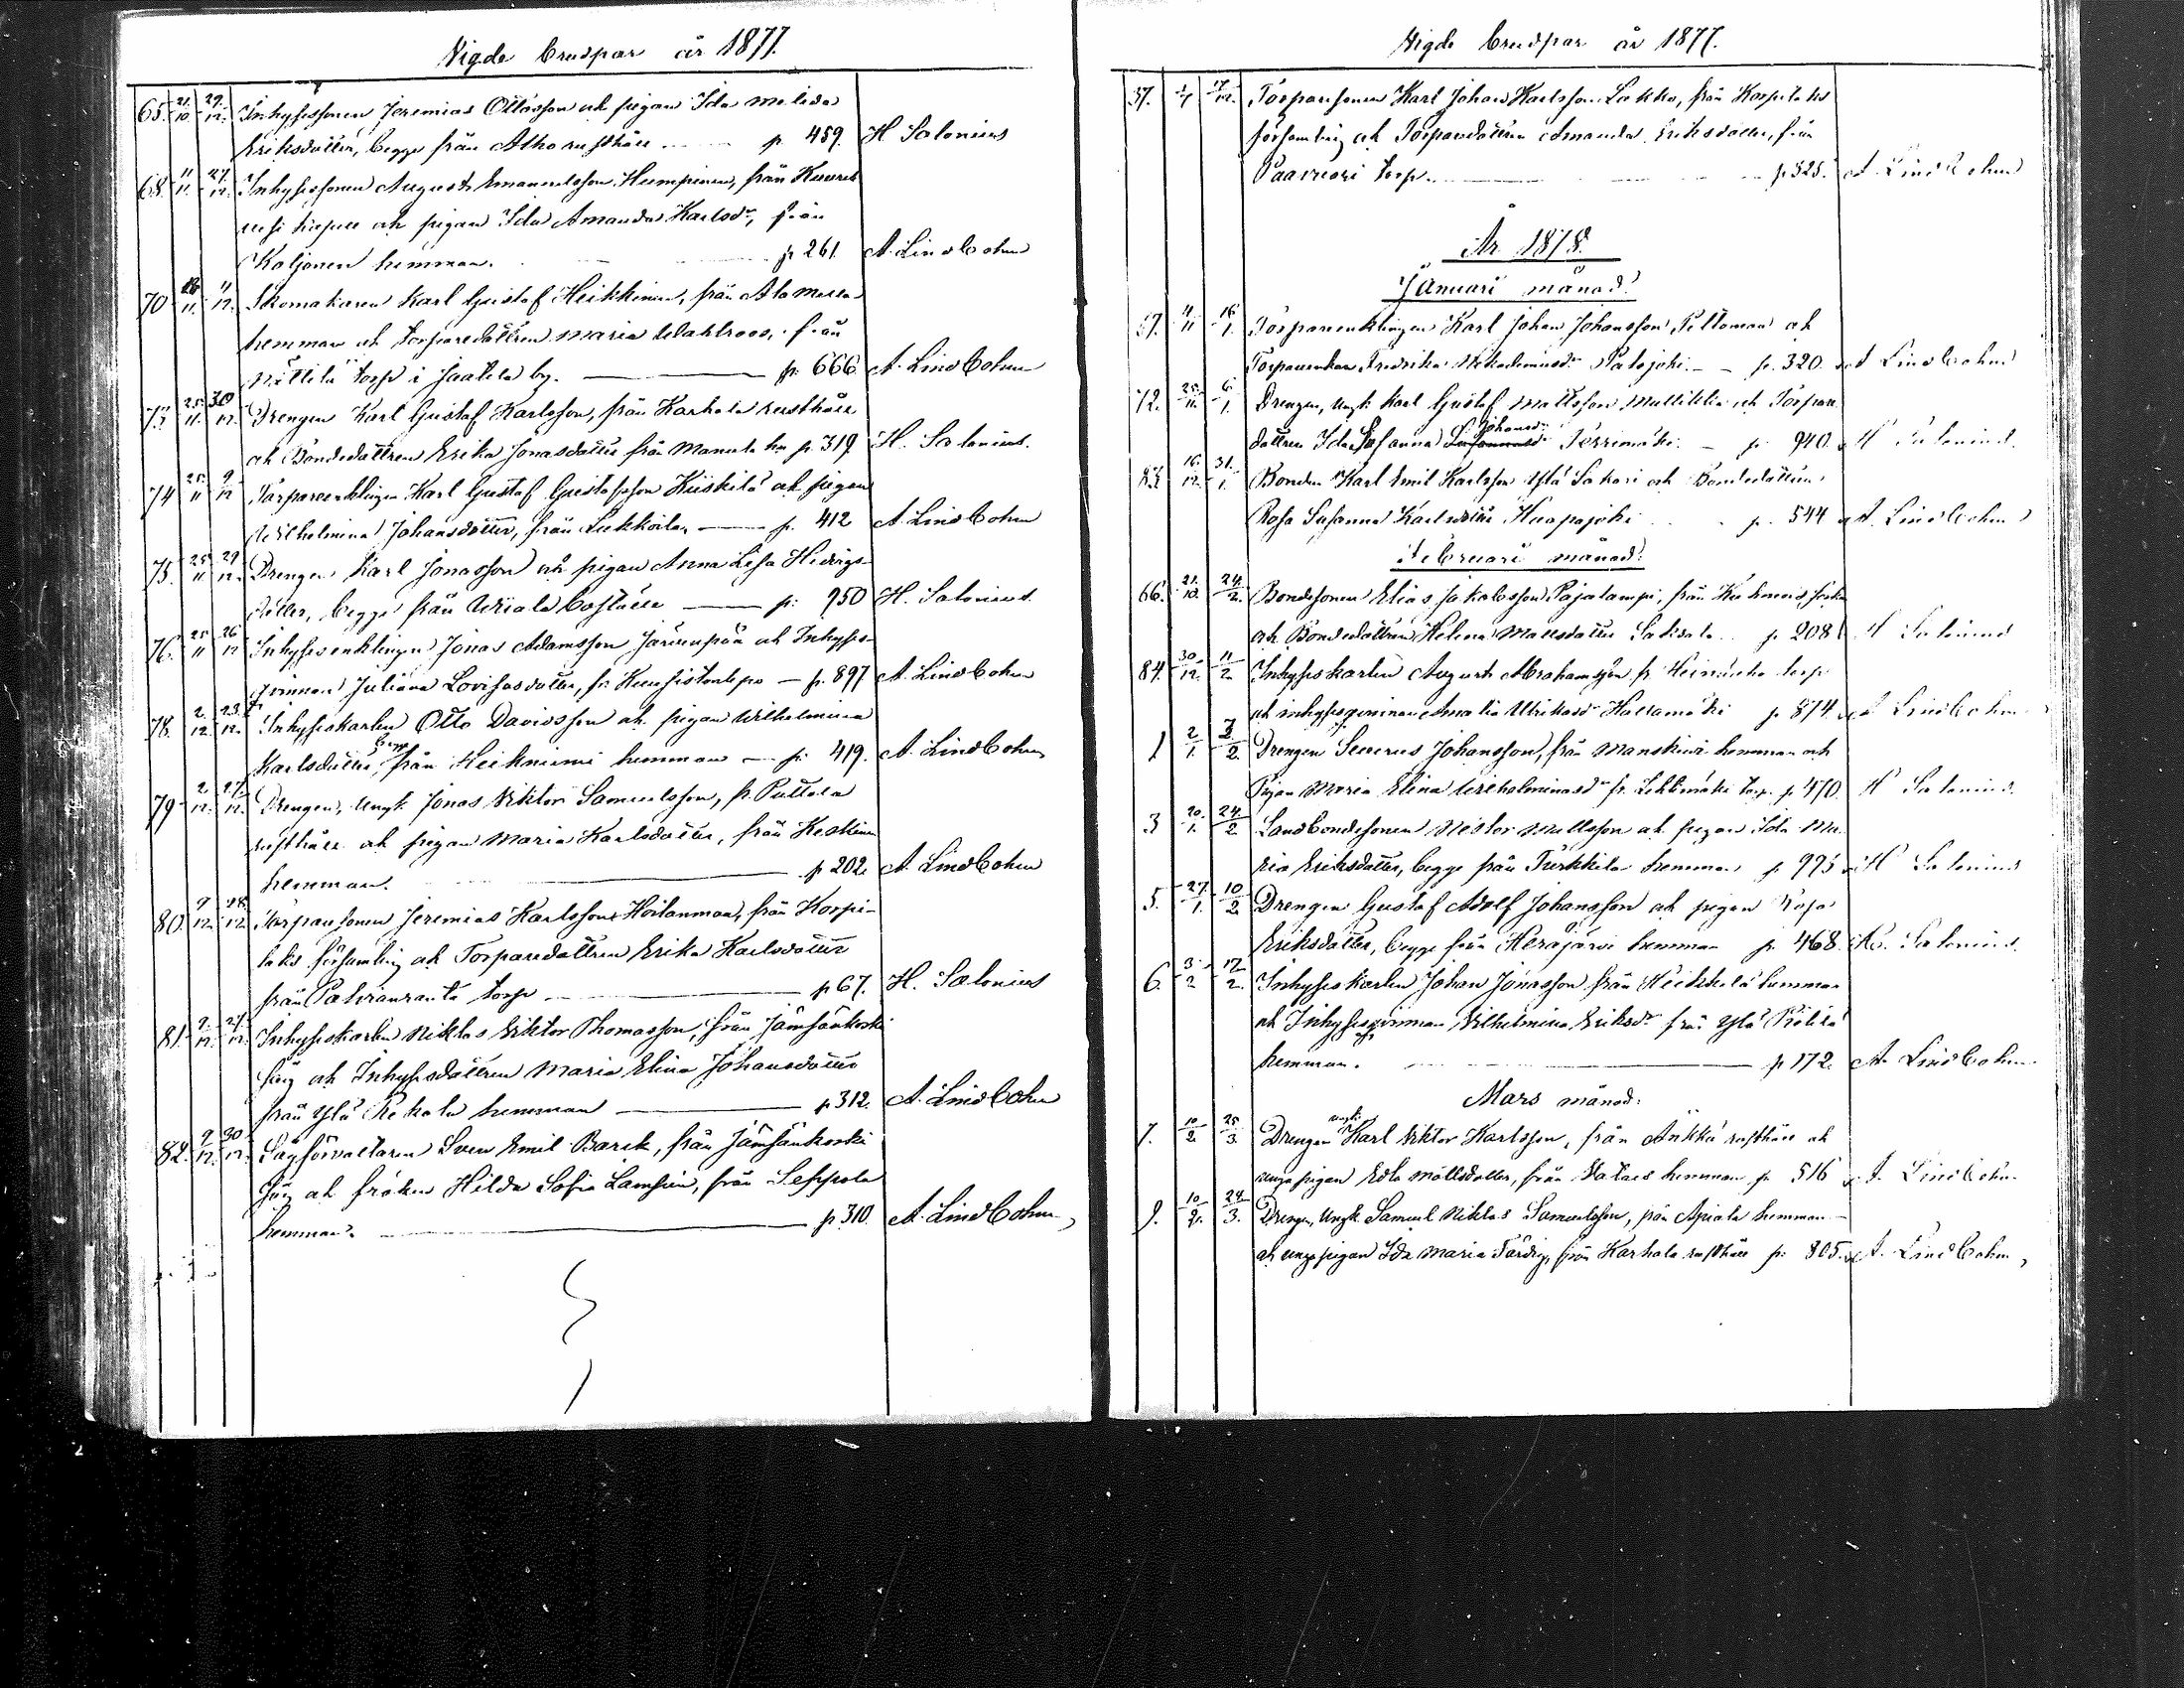 Vigde brudpar år 1877.
65. 21/10. 29/12. Inhysessonen Jeremias Ottosson och pigan Ida Matilda
Eriksdotter, begge från Alho rusthåll p. 459. H Salonius
68. 11/11. 27/12. Inhysessonen August Emanuelsson Humpinen, från
och pigan Ida Amanda Karlsdr, från
Koljonen hemman. p. 261. A. Lindbohm
70 11/12. Skomakaren Karl Gustaf Heikkinen, från Alamella
hemman och torparedottren Maria Wahlroos, från
Nättilä torp i Jaatila by. p. 666 A. Lindbohm
73. 25/11. 30/12. Drengen Karl Gustaf Karlsson, från Karhola rusthåll
och Bondedottren Erika Jonasdotter från p. 319. H. Salonius.
74 25/11 9/12 Torpareenklingen Karl Gustaf Gustafsson Kiiskilä och pigan
Wilhelmina Johansdotter, från p. 412 A. Lindbohm
75. 25/11 29/12. Drengen Karl Jonasson och pigan Anna Lisa Hedvigs-
dotter, begge från Wiiala boställe p: 950 H. Salonius.
76. 25/11 26/12 Inhysesenklingen Jonas Adamsson Järvenpää och Inhyses-
qvinnan Juliana Lovisasdotter, fr. p. 897 A. Lindbohm
78. 2/12. 23/12. Inhyseskarlen Otto Davidsson och pigan Wilhelmina
Karlsdotter, begge från Heikniemi hemman p: 419. A. Lindbohm
79 2/12. 27/12. Drengen, Ungk. Jonas Viktor Samuelsson, fr. Puttola
rusthåll och pigan Maria Karlsdotter, från Keskinen
hemman. p 202. A. Lindbohm
80. 9/12. 28/12 Torparsonen Jeremias Karlsson Hoilanmaa, från Korpi-
laks församling och Torparedottren Erika Karlsdotter
från Pahranranta torp p 67. H. Salonius
81. 9/12. 27/12. Inhyseskarlen Niklas Viktor Thomasson, från Jämsänkoski
såg och Inhysesdottren Maria Elina Johansdotter
från Ylä Rekola hemman p 312. A. Lindbohm
82. 9/12. 30/12. Sågförvaltaren Sven Emil Barck, från Jämsänkoski
såg och fröken Hilda Sofia Lamsiin, från Seppola
hemman. p. 310. A. Lindbohm
Vigde brudpar år 1877.
37. 17/12. Torparesonen Karl Johan Karlsson Lakka, från Korpilaks
församling och Torparedottren Amanda Eriksdotter, från
Paavuori torp. p 325. A Lindbohm
År 1878.
Januari månad.
11/11 16/1. Torpareenklingen Karl Johan Johansson Peltomaa och
Torpareenkan Fredrika Palojoki p. 320. A Lindbohm
72. 25/11. 6/1. Drengen, Ungk. Karl Gustaf Mattsson och Torpare-
dottren Ida Susanna Johansdr p: 940. H Salonius.
83. 16/12. 31/1. Bonden Karl Emil Karlsson Ylä Sakari och Bondedottren
Rosa Susanna Karlsdotter Haapajoki p. 544 A. Lindbohm
Februari månad:
66. 21/10. 24/2. Bondesonen Elias Jakobsson Pajalampi, från
och Bondedottren Helena Mattsdotter p. 208 H Salonius
84. 30/12. 11/2 Inhyseskarlen August Abrahamsson fr. torp
och inhysesqvinnan Amalia Ulrikasdr Hallamäki p. 874. A Lindbohm
1 2/1. 3/2. Drengen Severus Johansson, från Manskivi hemman och
Pigan Maria Elina Wilhelminasdr fr. Lehtimäki torp. p. 470. H Salonius.
3 20/1. 24/2. Landbondesonen Nestor Mattsson och pigan Ida Ma-
ria Eriksdotter, begge från Turkkila hemman p 995 H Salonius
5. 27/1. 10/2 Drengen Gustaf Adolf Johansson och pigan Rosa
Eriksdotter, begge från Herajärvi hemman p. 468. H. Salonius.
6. 3/2 17/2. Inhyseskarlen Johan Jonasson från Heikkilä hemman
och Inhysesqvinnan Vilhelmina Eriksdr från Ylä
hemman. p 172. A. Lindbohm
Mars månad:
7. 10/2. 25/3. Drengen ungk. Karl Viktor Karlsson, från Änkkä rusthåll och
unga pigan Edla Mattsdotter, från hemman p. 516 A. Lindbohm
9. 10/2. 24/3. Drengen, Ungk. Samuel Niklas Samuelsson, från Apiala hemman
och unga pigan Ida Maria Färdig, från Karhola rusthåll p: 805. A. Lindbohm